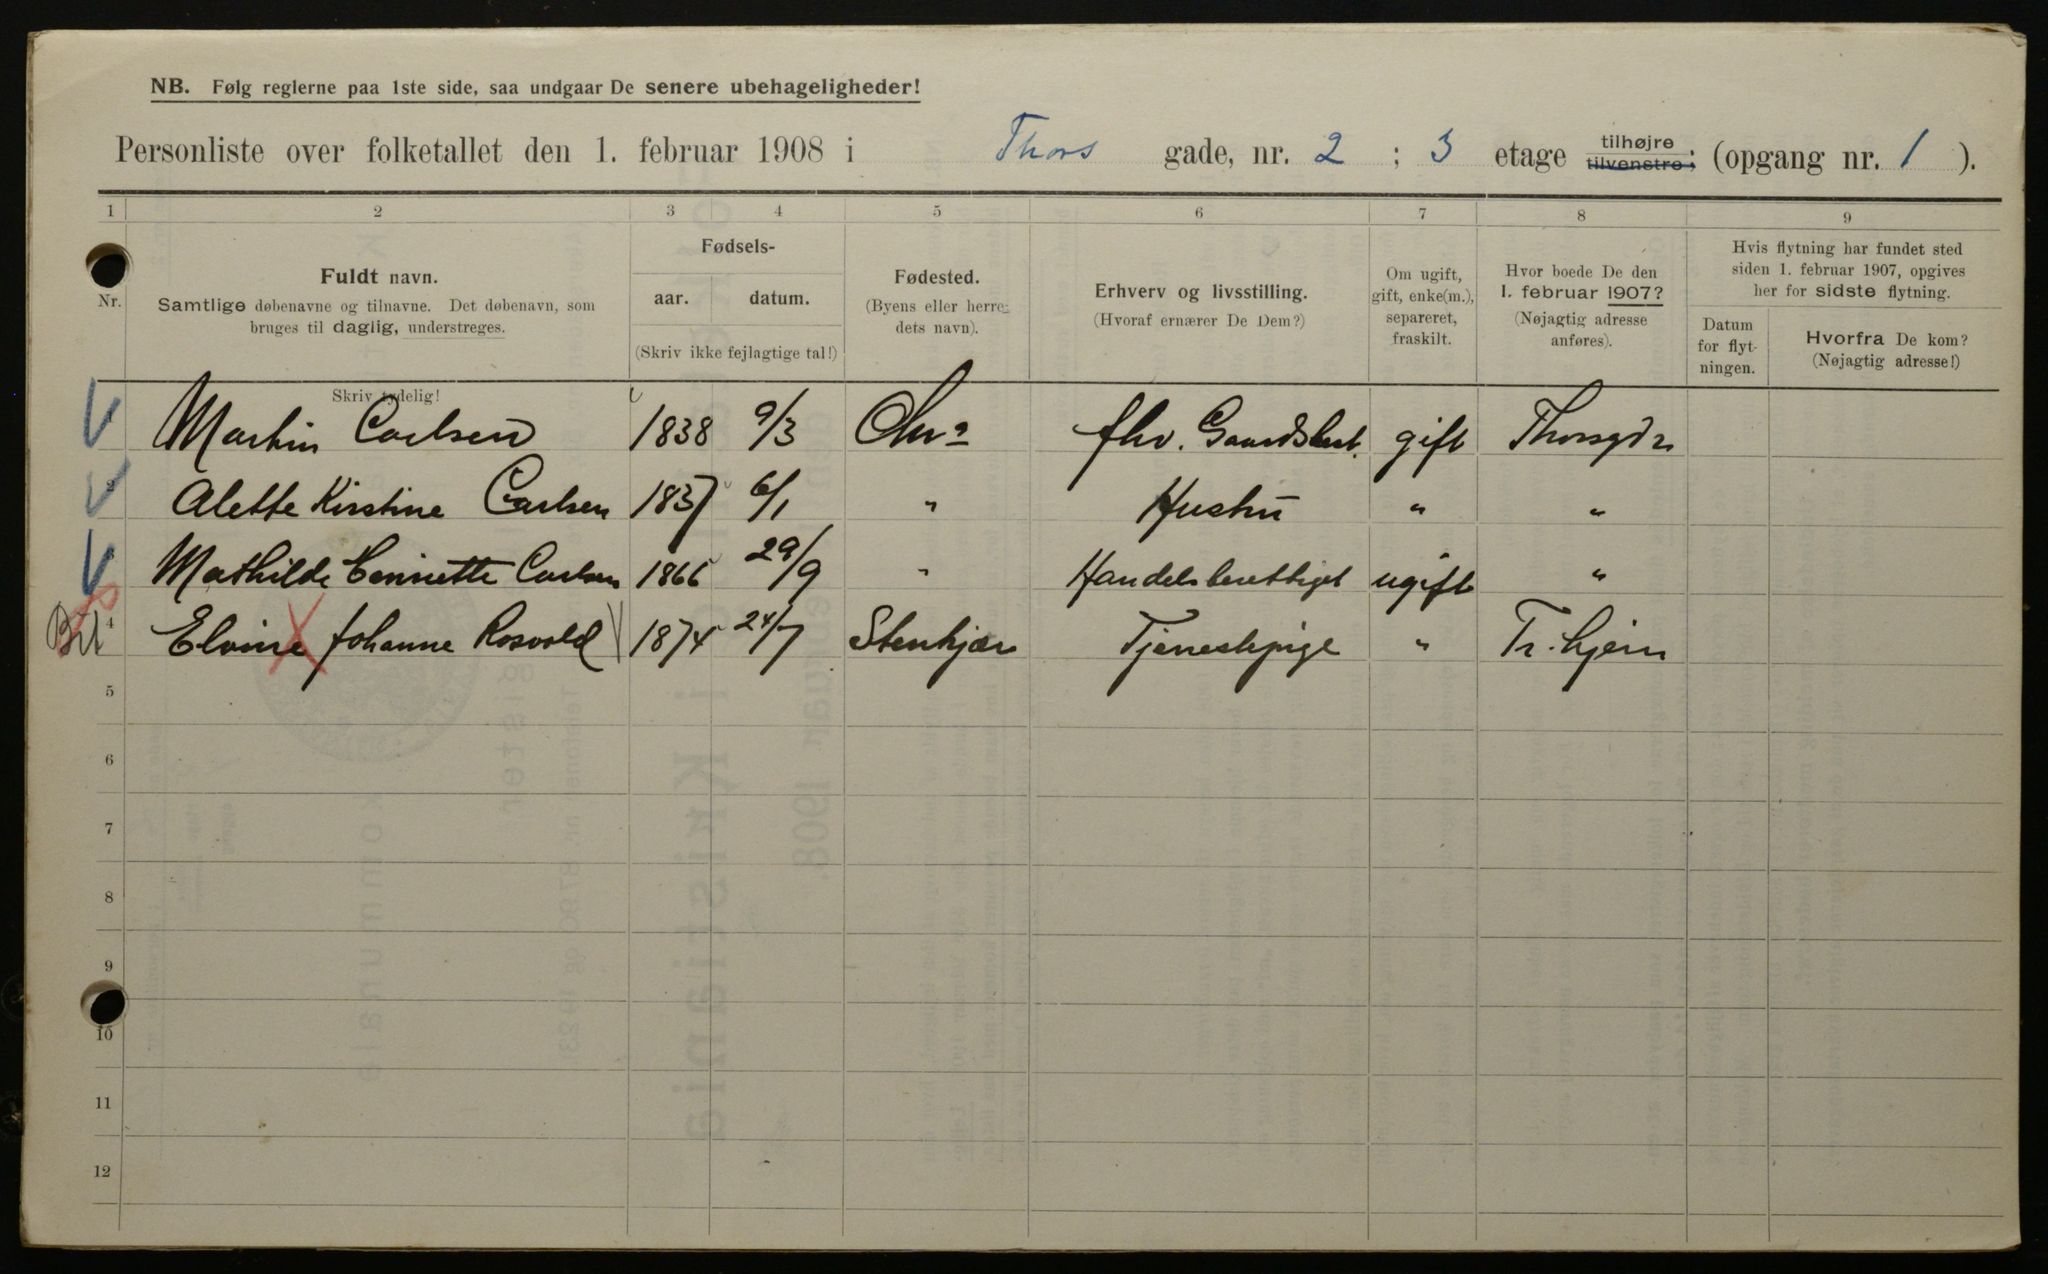 NB. Følg reglerne paa 1ste side, saa undgaar De senere ubehageligheder!
Personliste over folketallet den 1. februar 1908 i Thors gade, nr. 2 ; 3 etage tilhøjre tilvenstre; (opgang nr. 1 ).
1 2 3 4 5 6 7 8 9
Nr.
Fuldt navn.
Samtlige døbenavne og tilnavne. Det døbenavn, som
bruges til daglig, understreges.
Skriv tydelig!
Fødsels-
aar. datum.
(Skriv ikke fejlagtige tal!)
Fødested.
(Byens eller herre-
dets navn).
Erhverv og livsstilling.
(Hvoraf ernærer De Dem?)
Om ugift,
gift, enke(m.),
separeret,
fraskilt.
Hvor boede De den
1. februar 1907?
(Nøjagtig adresse
anføres).
Hvis flytning har fundet sted
siden 1. februar 1907, opgives
her for sidste flytning.
Datum
for flyt-
ningen.
Hvorfra De kom?
(Nøjagtig adresse!)
Martin Carlsen 1838 9/3 Chra fhv. Gaardsbest. gift Thorsgd 2
2 Alette Kirstine Carlsen 1837 6/1 " Hustru " "
3 Mathilde Henriette Carlsen 1866 29/9 " Handelsberettiget ugift "
4 Elvine Johanne Rosvold 1874 24/7 Stenkjær Tjenestepige " Tr.hjem
5
6
7
8
9
10
11
12